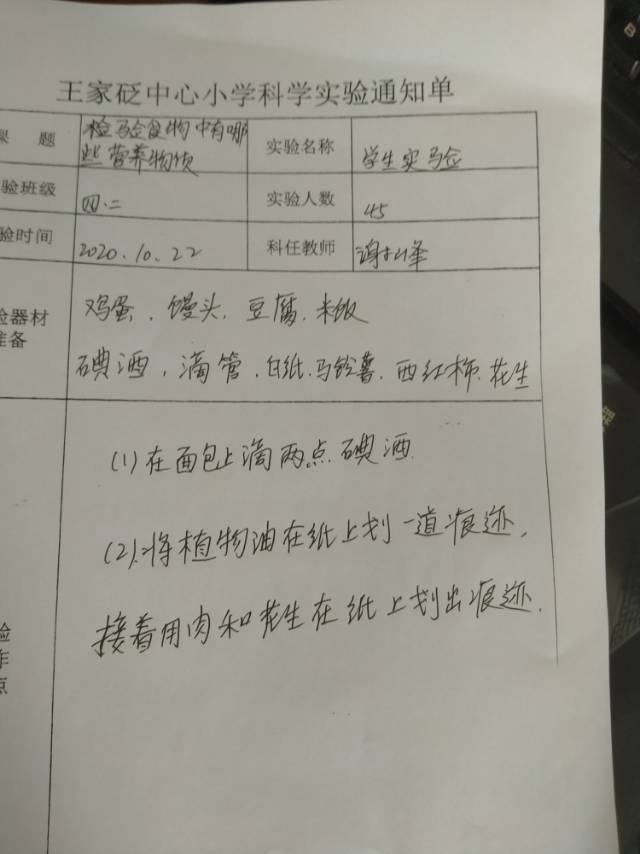 王家砭中心小学科学实验通知单
课 题 检验食物中有哪些营养物质 实验名称 学生实验
验班级 四.二 实验人数 45
验时间 2020.10.22 科任教师
验器材准备 鸡蛋、馒头、豆腐、米饭
碘酒、滴管、白纸、马铃薯、西红柿、花生
(1)在面包上滴两点碘酒.
(2).将植物油在纸上划一道痕迹,
接着用肉和花生在纸上划出痕迹.
验
作
点